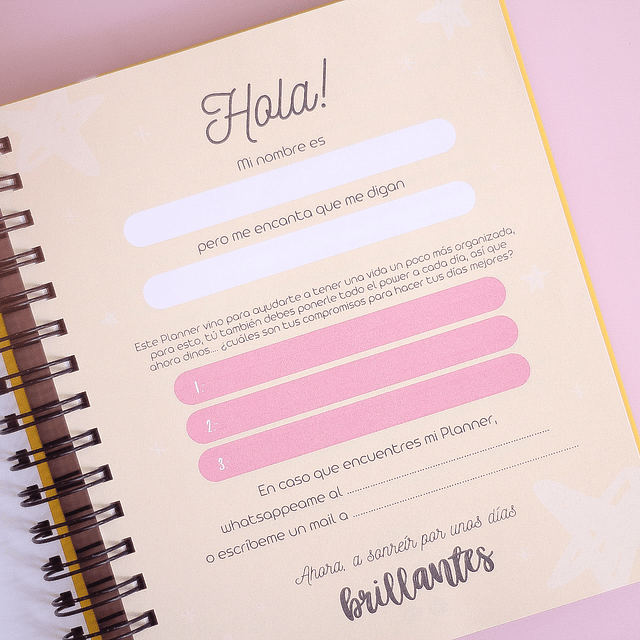 Hola!
Mi nombre es
pero me encanta que me digan
Este Planner vino para ayudarte a tener una vida un poco más organizada,
para esto, tú también debes ponerle todo el power a cada día, así que
ahora dinos.... ¿cuáles son tus compromisos para hacer tus días mejores?
1.
2.
3.
En caso que encuentres mi Planner,
whatsappeame al
o escríbeme un mail a
Ahora, a sonreír por unos días
brillantes